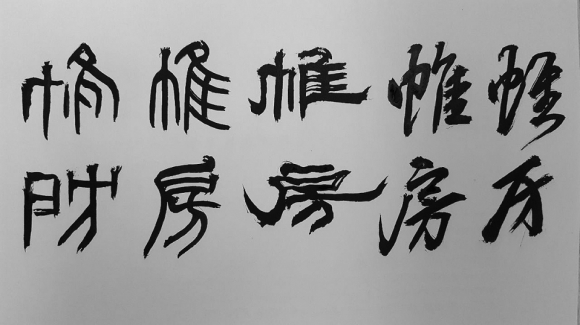 帷帷帷帷帷
房房房房房